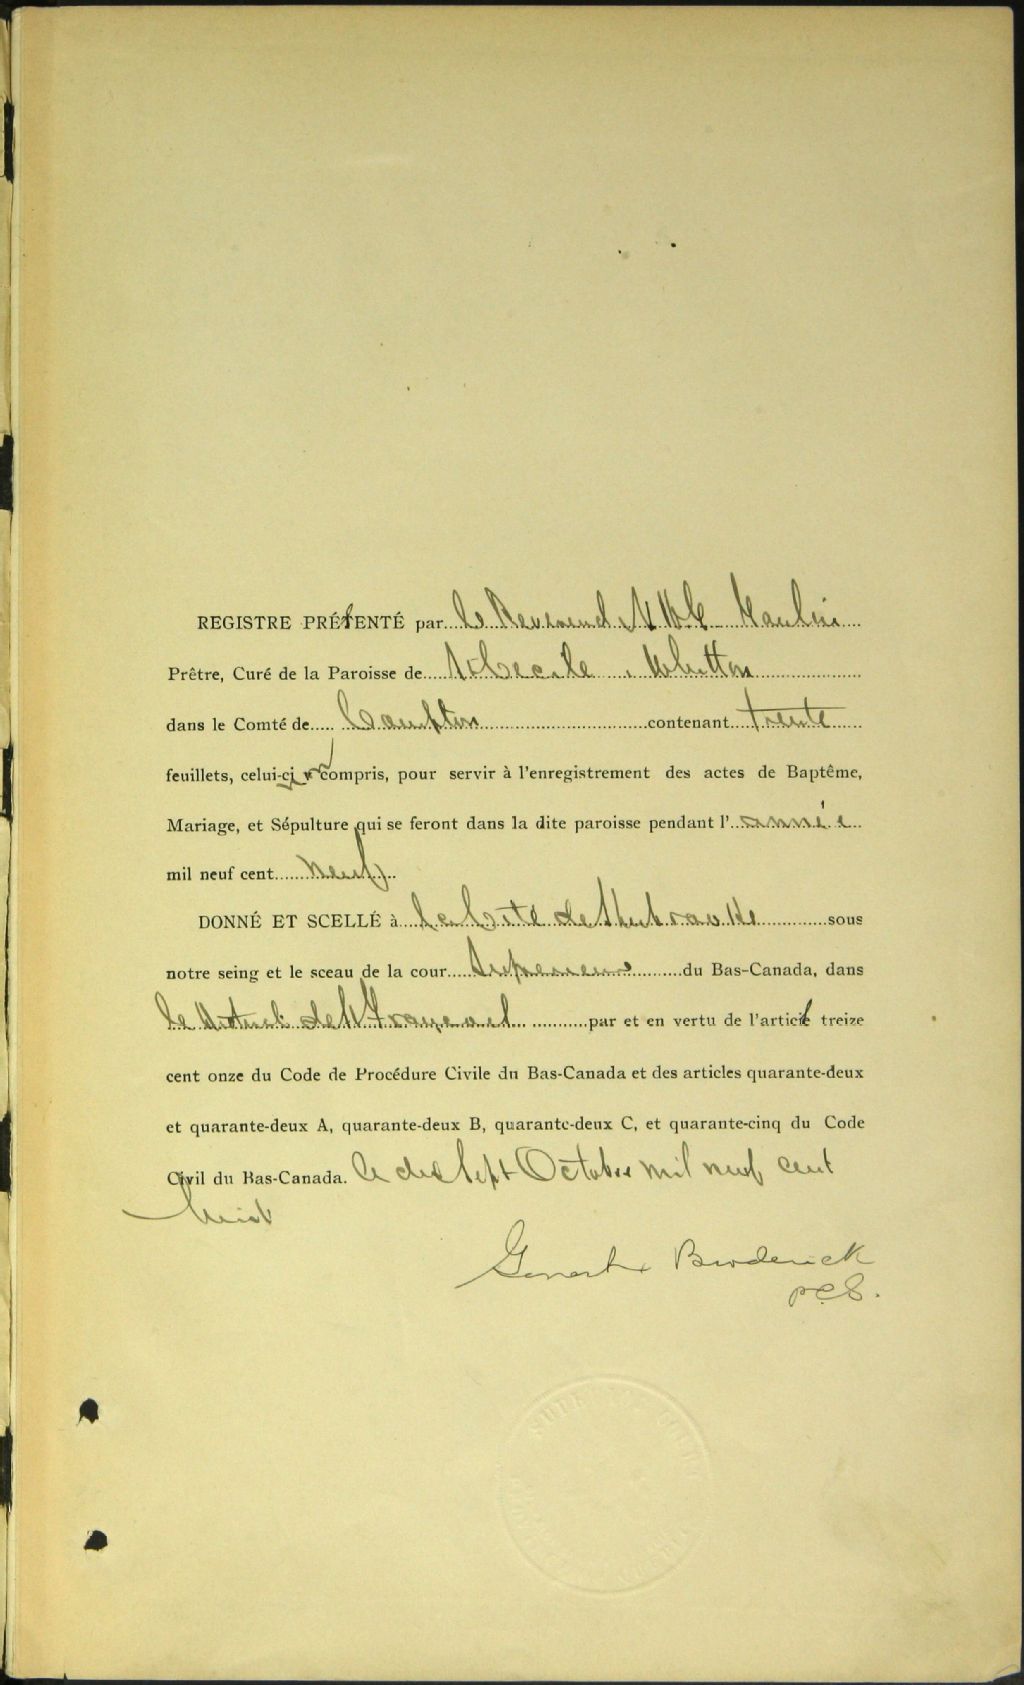 REGISTRE PRÉSENTÉ par le Révérend
Prêtre, Curé de la Paroisse de St Cecile, Whitton
dans le Comté de Compton contenant trente
feuillets, celui-ci y compris, pour servir à l'enregistrement des actes de Baptême,
Mariage, et Sépulture qui se feront dans la dite paroisse pendant l'année
mil neuf cent neuf
DONNÉ ET SCELLÉ à la Cité de Sherbrooke sous
notre seing et le sceau de la cour Superieure du Bas-Canada, dans
le District de St François par et en vertu de l'article treize
cent onze du Code de Procédure Civile du Bas-Canada et des articles quarante-deux
et quarante-deux A, quarante-deux B, quarante-deux C, et quarante-cinq du Code
Civil du Bas-Canada. le dix sept Octobre mil neuf cent
huit
Broderick
P.C.S.